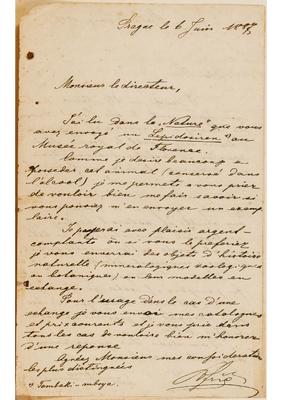 Prague le 6 Juin 1887
Monsieur le directeur,
J'ai lu dans le "Nature" que vous
avez envoyé un Lepidosiren au
Musée royal de Florence.
Comme je desire beaucoup a
posseder cet animal (conservé dans
l'alcool) je me permets a vous prier
de vouloir bien me faire savoir si
vous pouvez m'en envoyer un exem
plaire.
Je payerai avec plaisir argent-
comptant ou si vous le preferiez
je vous enverrai des objets d'histoire
naturelle (mineralogiques zoologiques
ou botaniques) ou bien modelles en
echange.
Pour l'usage dans le cas d'une
echange je vous envoi mes catalogues
et prix courants et je vous prie dans
tous les cas de vouloir bien m'honorer
d'une reponse
Agréez Monsieur mes consideration
les plus distinguées
V Frič
Tambaki-mboya.